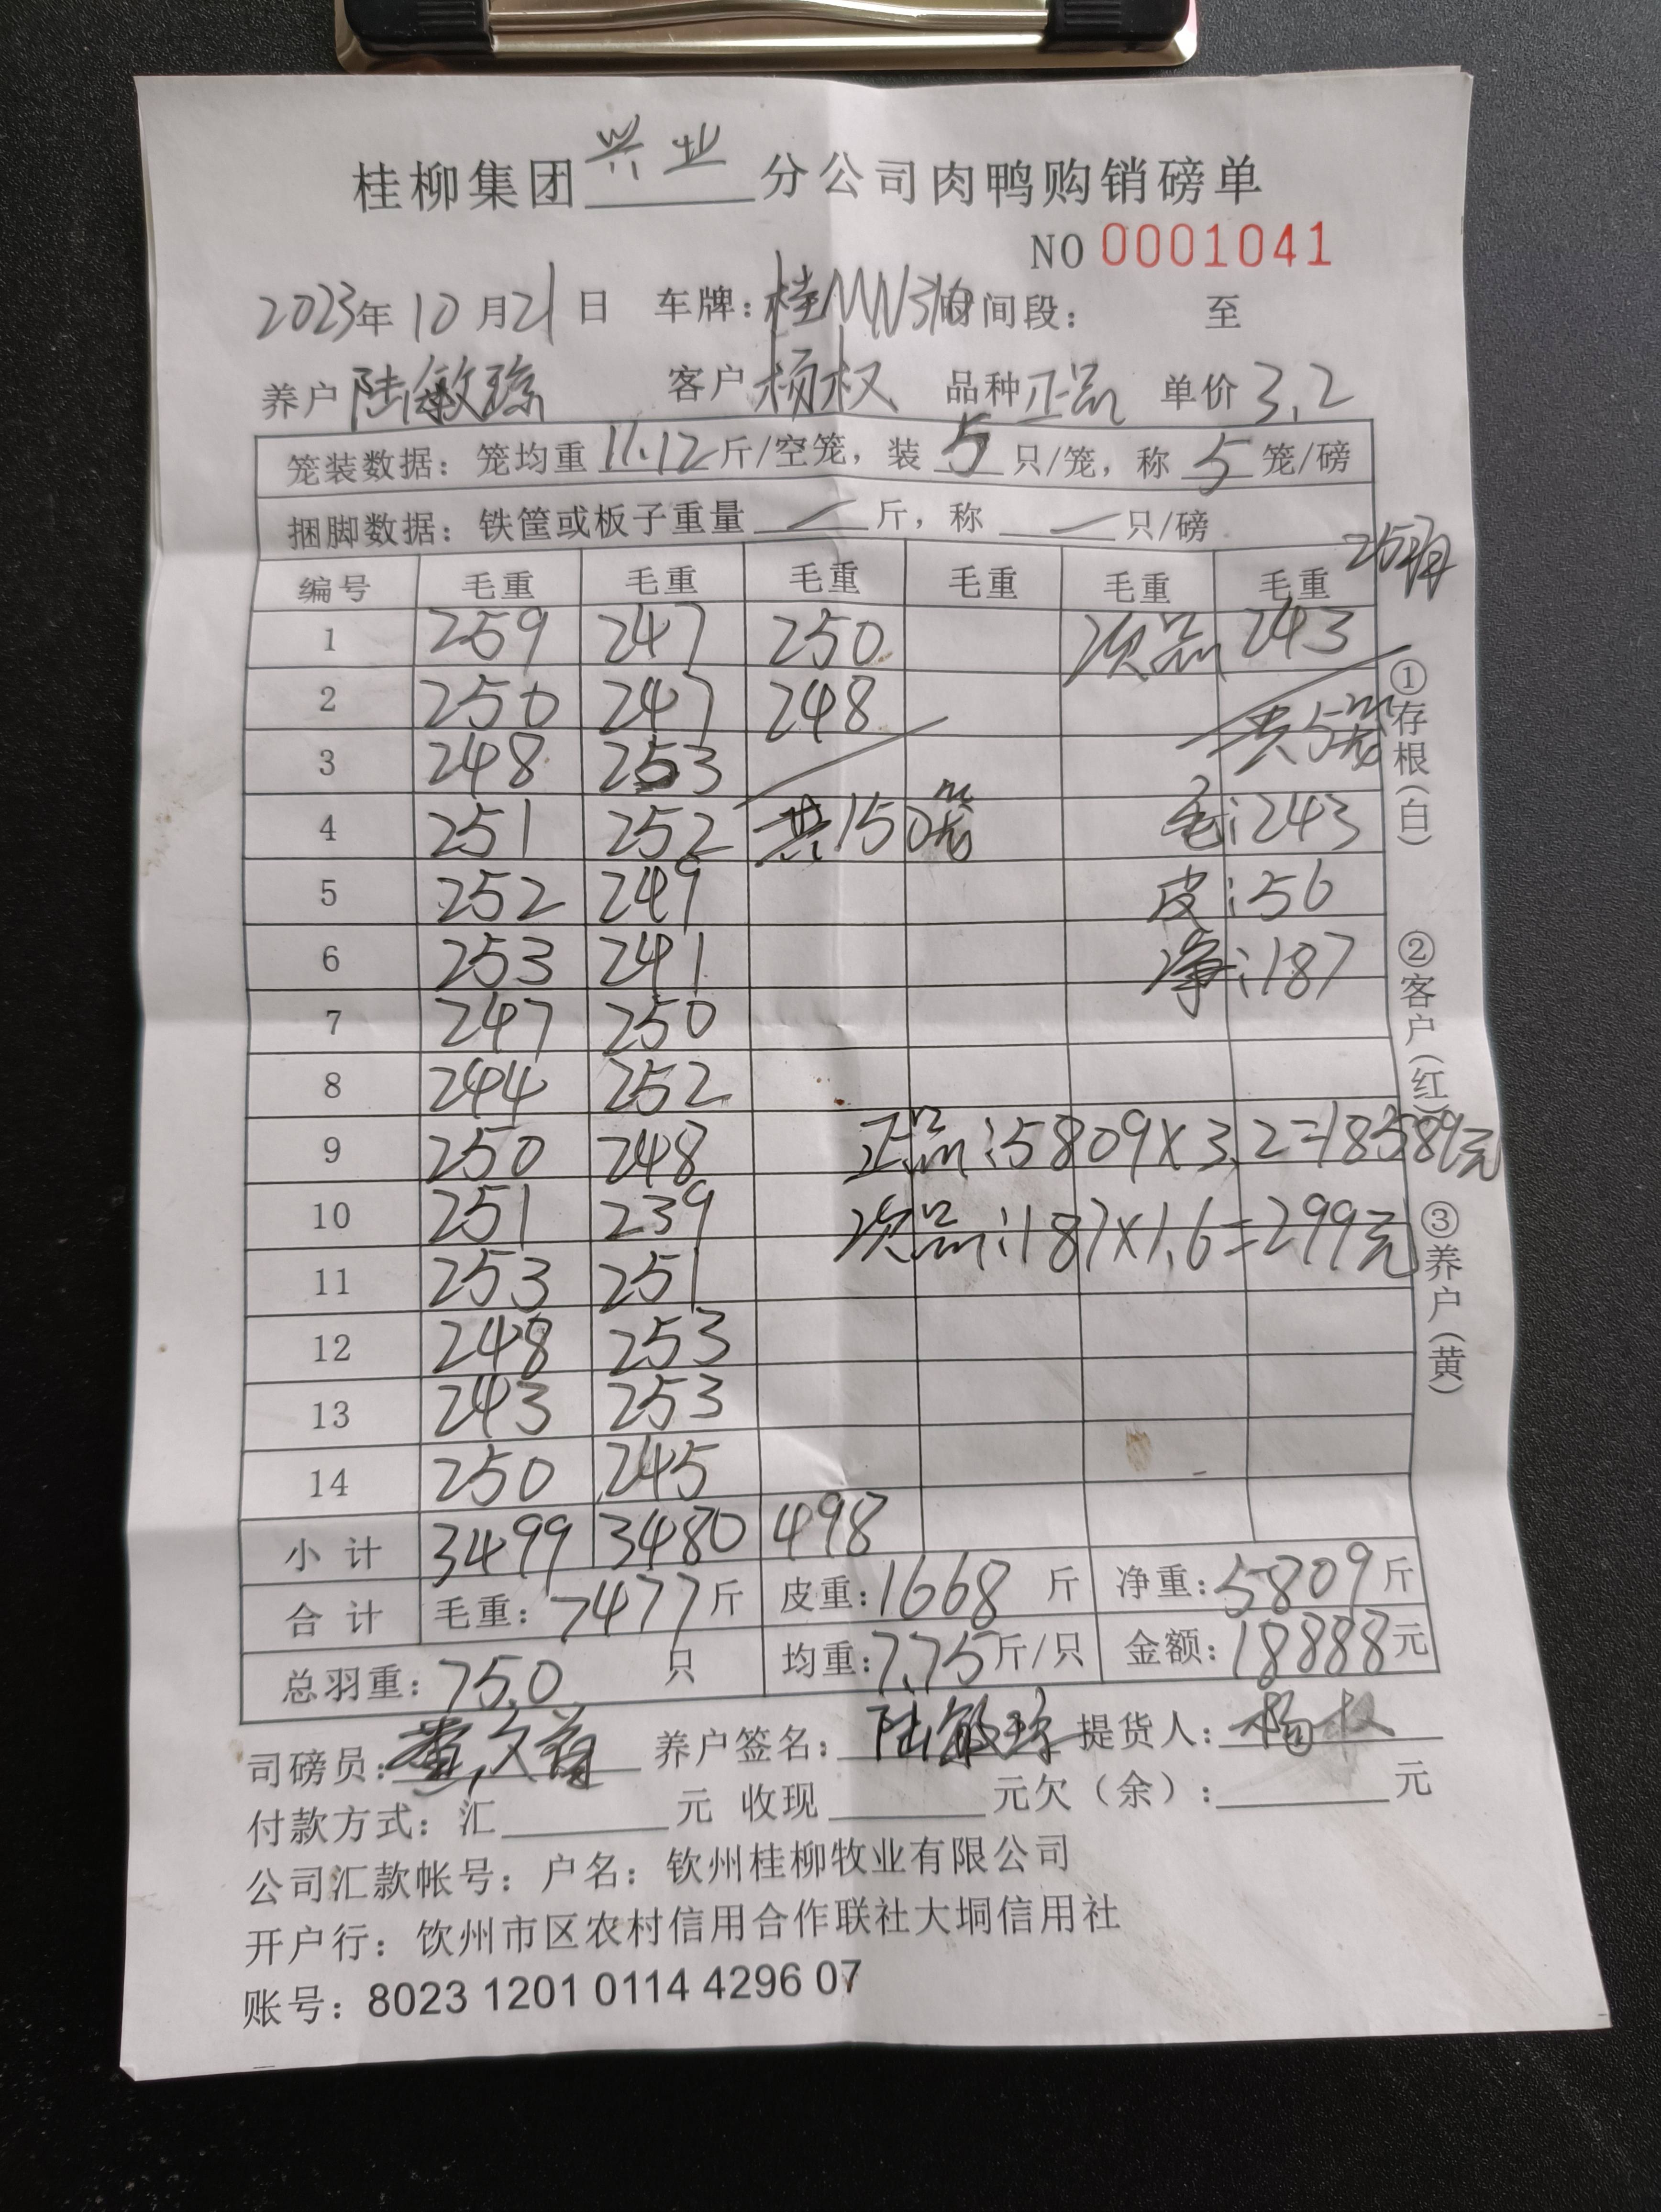 桂柳集团兴业分公司肉鸭购销磅单
NO 0001041
2023年10月21日 车牌：桂 时间段： 至
养户 陆敏琼 客户 杨权 品种 正品 单价 3.2
笼装数据：笼均重 11.12 斤/空笼，装 5 只/笼，称 5 笼/磅
捆脚数据：铁筐或板子重量 / 斤，称 / 只/磅
25只
编号 毛重 毛重 毛重 毛重 毛重 毛重
1 259 247 250 次品 243
2 250 247 248 共5笼
3 248 253
4 251 252 共150笼 毛：243
5 252 249 皮：56
6 253 241 净：187
7 247 250
8 244 252
9 250 248 正品：5809×3.2=18589元
10 251 239 次品：187×1.6=299元
11 253 251
12 248 253
13 243 253
14 250 245
小计 3499 3480 498
合计 毛重：7477斤 皮重：1668斤 净重：5809斤
总羽重：750只 均重：7.75斤/只 金额：18888元
①存根（白） ②客户（红） ③养户（黄）
司磅员：黄 养户签名：陆敏琼 提货人：杨权
付款方式：汇 元 收现 元欠（余）： 元
公司汇款帐号：户名：钦州桂柳牧业有限公司
开户行：饮州市区农村信用合作联社大垌信用社
账号：8023 1201 0114 4296 07